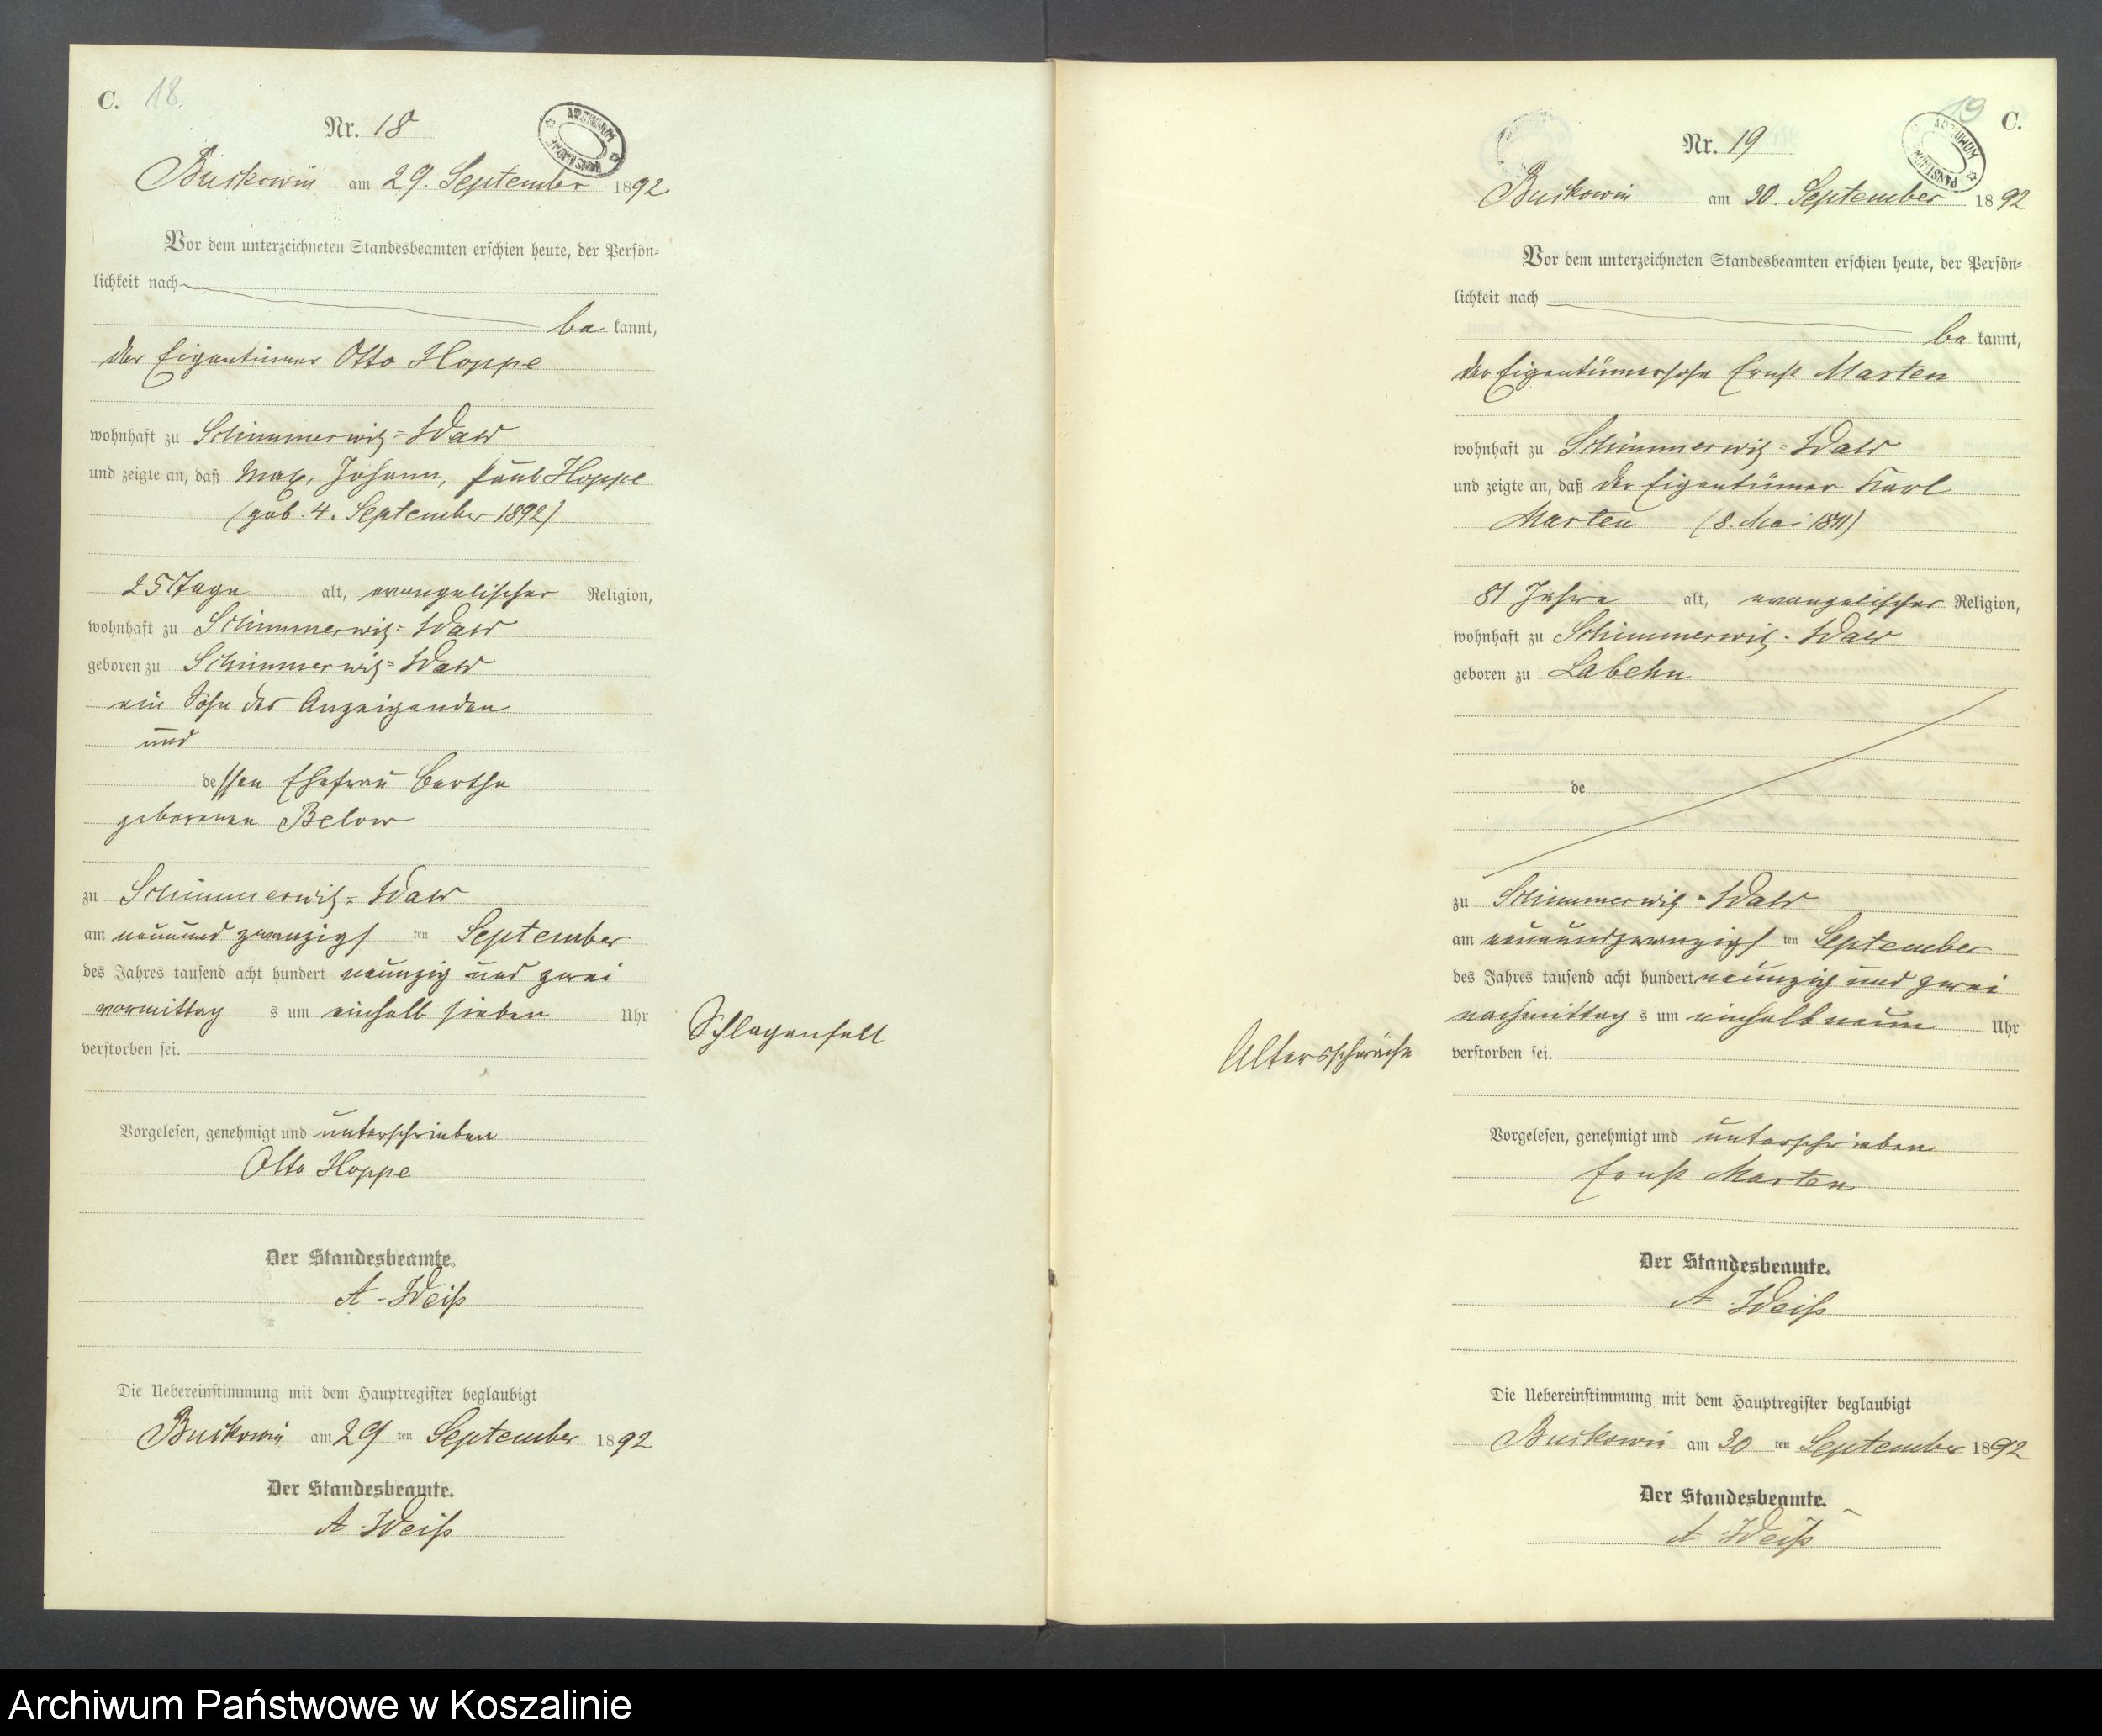 C. 18.
Nr. 18
ARCHIWUM PAŃSTWOWE
Buckowin am 29. September 1892
Vor dem unterzeichneten Standesbeamten erschien heute, der Persön-
lichkeit nach
be kannt,
der Eigentümer Otto Hoppe
wohnhaft zu Schimmerwitz-Wald
und zeigte an, daß Max, Johann, Paul Hoppe
(geb. 4. September 1892)
25 Tage alt, evangelischer Religion,
wohnhaft zu Schimmerwitz-Wald
geboren zu Schimmerwitz-Wald
ein Sohn des Anzeigenden
und
dessen Ehefrau Bertha
geborenen Below
zu Schimmerwitz-Wald
am neunundzwanzigs ten September
des Jahres tausend acht hundert neunzig und zwei
vormittag s um einhalb sieben Uhr
verstorben sei.
Schlagenfall
Vorgelesen, genehmigt und unterschrieben
Otto Hoppe
Der Standesbeamte.
A. Weiß
Die Uebereinstimmung mit dem Hauptregister beglaubigt
Buckowin am 29 ten September 1892
Der Standesbeamte.
A. Weiß
19 C.
Nr. 19
ARCHIWUM PAŃSTWOWE
Buckowin am 30. September 1892
Vor dem unterzeichneten Standesbeamten erschien heute, der Persön-
lichkeit nach
be kannt,
der Eigentümersohn Ernst Marten
wohnhaft zu Schimmerwitz-Wald
und zeigte an, daß der Eigentümer Karl
Marten (8. Mai 1811)
81 Jahre alt, evangelischer Religion,
wohnhaft zu Schimmerwitz-Wald
geboren zu Labehn
de
zu Schimmerwitz-Wald
am neunundzwanzigs ten September
des Jahres tausend acht hundert neunzig und zwei
nachmittag s um einhalb neun Uhr
verstorben sei.
Altersschwäche
Vorgelesen, genehmigt und unterschrieben
Ernst Marten
Der Standesbeamte.
A. Weiß
Die Uebereinstimmung mit dem Hauptregister beglaubigt
Buckowin am 30 ten September 1892
Der Standesbeamte.
A. Weiß
Archiwum Państwowe w Koszalinie